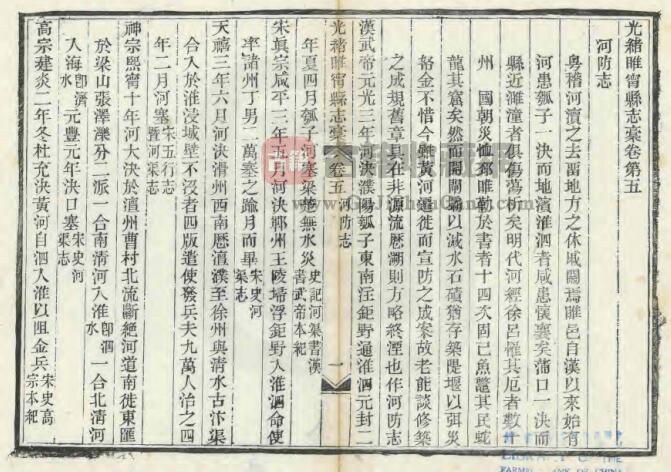 光緒睢甯縣志稾卷第五
河防志
粤稽河瀆之去畱地方之休戚關焉睢邑自漢以來始有
河患瓠子一決而地濱淮泗者咸患懷襄矣蒲口一決而
縣近濉潼者俱傷蕩析矣明代河經徐呂罹其厄者數十
州 國朝災恤郑睢勒於書者十四次固已魚鼈其民蛇
龍其窟矣然而開閘壩以減水石磧猶存築隄堰以弭災
帑金不惜今雖黄河遷徙而宣防之成案故老能談修築
之成規舊章具在非源流厯溯則方略終湮也作河防志
漢武帝元光三年河決濮陽瓠子東南注鉅野通淮泗元封二
光緒睢甯縣志稾 卷五 河防志 一
年夏四月瓠子河塞梁楚無水災史記河渠書漢書武帝本紀
宋真宗咸平三年五月河決鄆州王陵埽浮鉅野入淮泗命使
率諸州丁男二萬塞之踰月而畢宋史河渠志
天禧三年六月河決滑州西南厯澶濮至徐州與清水古汴渠
合入於淮浸城壁不沒者四版遣使發兵夫九萬人治之四
年二月河塞宋五行志暨河渠志
神宗熙甯十年河大決於澶州曹村北流斷絶河道南徙東匯
於梁山張澤濼分二派一合南清河入淮卽泗水一合北清河
入海卽濟水元豐元年決口塞宋史河渠志
高宗建炎二年冬杜充決黄河自泗入淮以阻金兵宋史高宗本紀
古籍收藏網
www.GuJiShouCang.Com
LIBRARY OF THE
FARMERS BANK OF CHINA